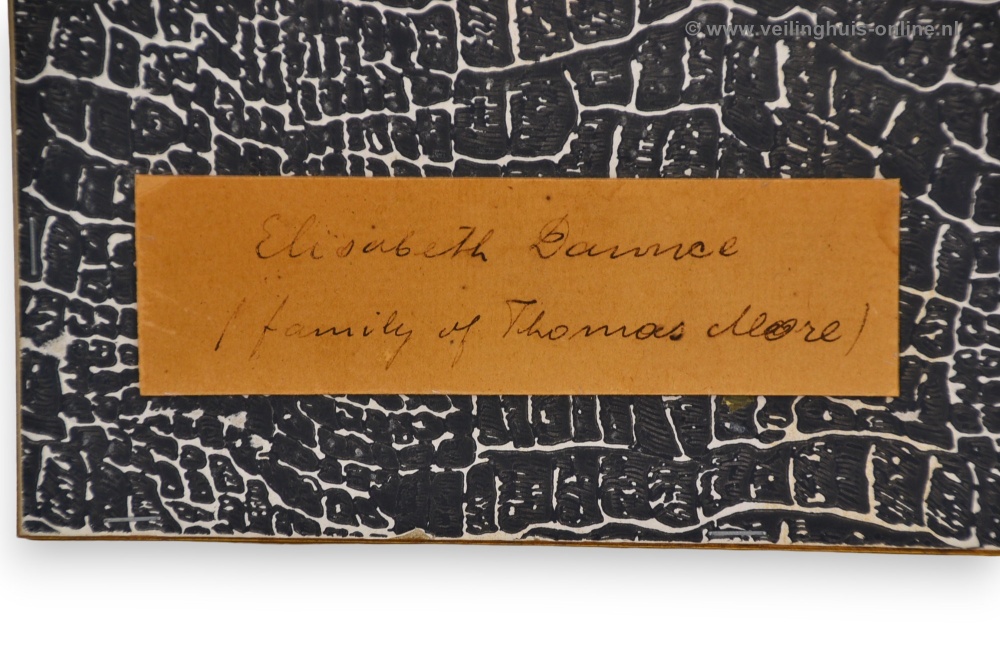 © www.veilinghuis-online.nl
Elisabeth Dawnce
(family of Thomas More)